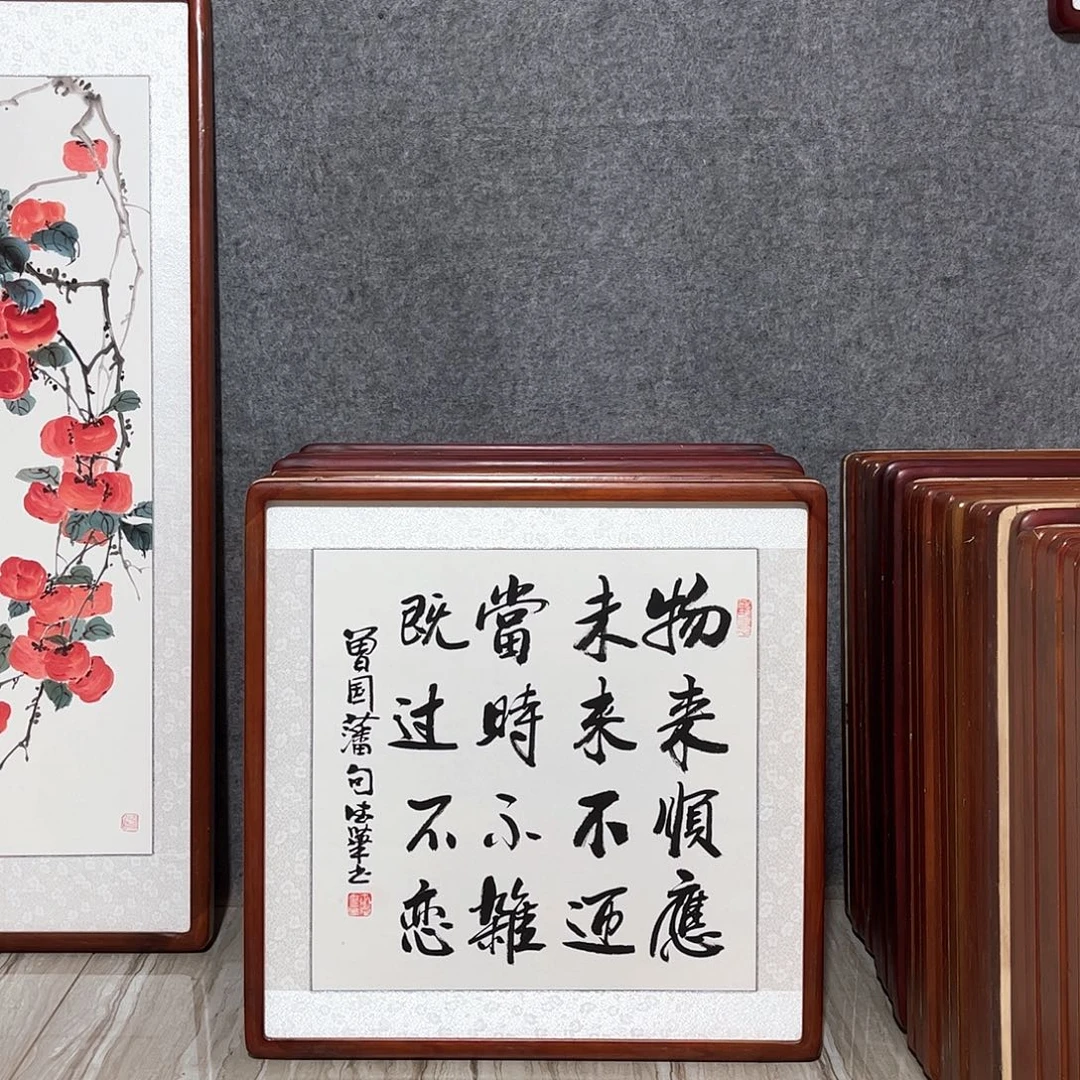 物来順應
未来不迎
當時不雜
既过不恋
曾国藩句德華书